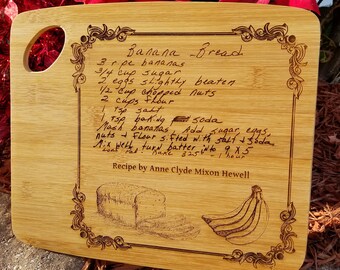 Banana Bread
3 ripe bananas
3/4 cup sugar
2 eggs slightly beaten
1/2 cup chopped nuts
2 cups flour
1 tsp salt
1 tsp baking soda
Mash bananas. Add sugar, eggs,
nuts & flour sifted with salt & soda.
Mix well, turn batter into 9 x 5
loaf pan. Bake 325° - 1 hour
Recipe by Anne Clyde Mixon Hewell